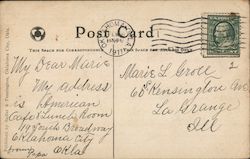 Post Card
THIS SPACE FOR CORRESPONDENCE
OKLAHOMA
1911
My Dear Marie
My address
is American
Cafe & Lunch Room
19 South Broadway
Oklahoma City
Okla
from
Papa
Marie L. Groce
60 Kensington Ave
La Grange
Ill
2